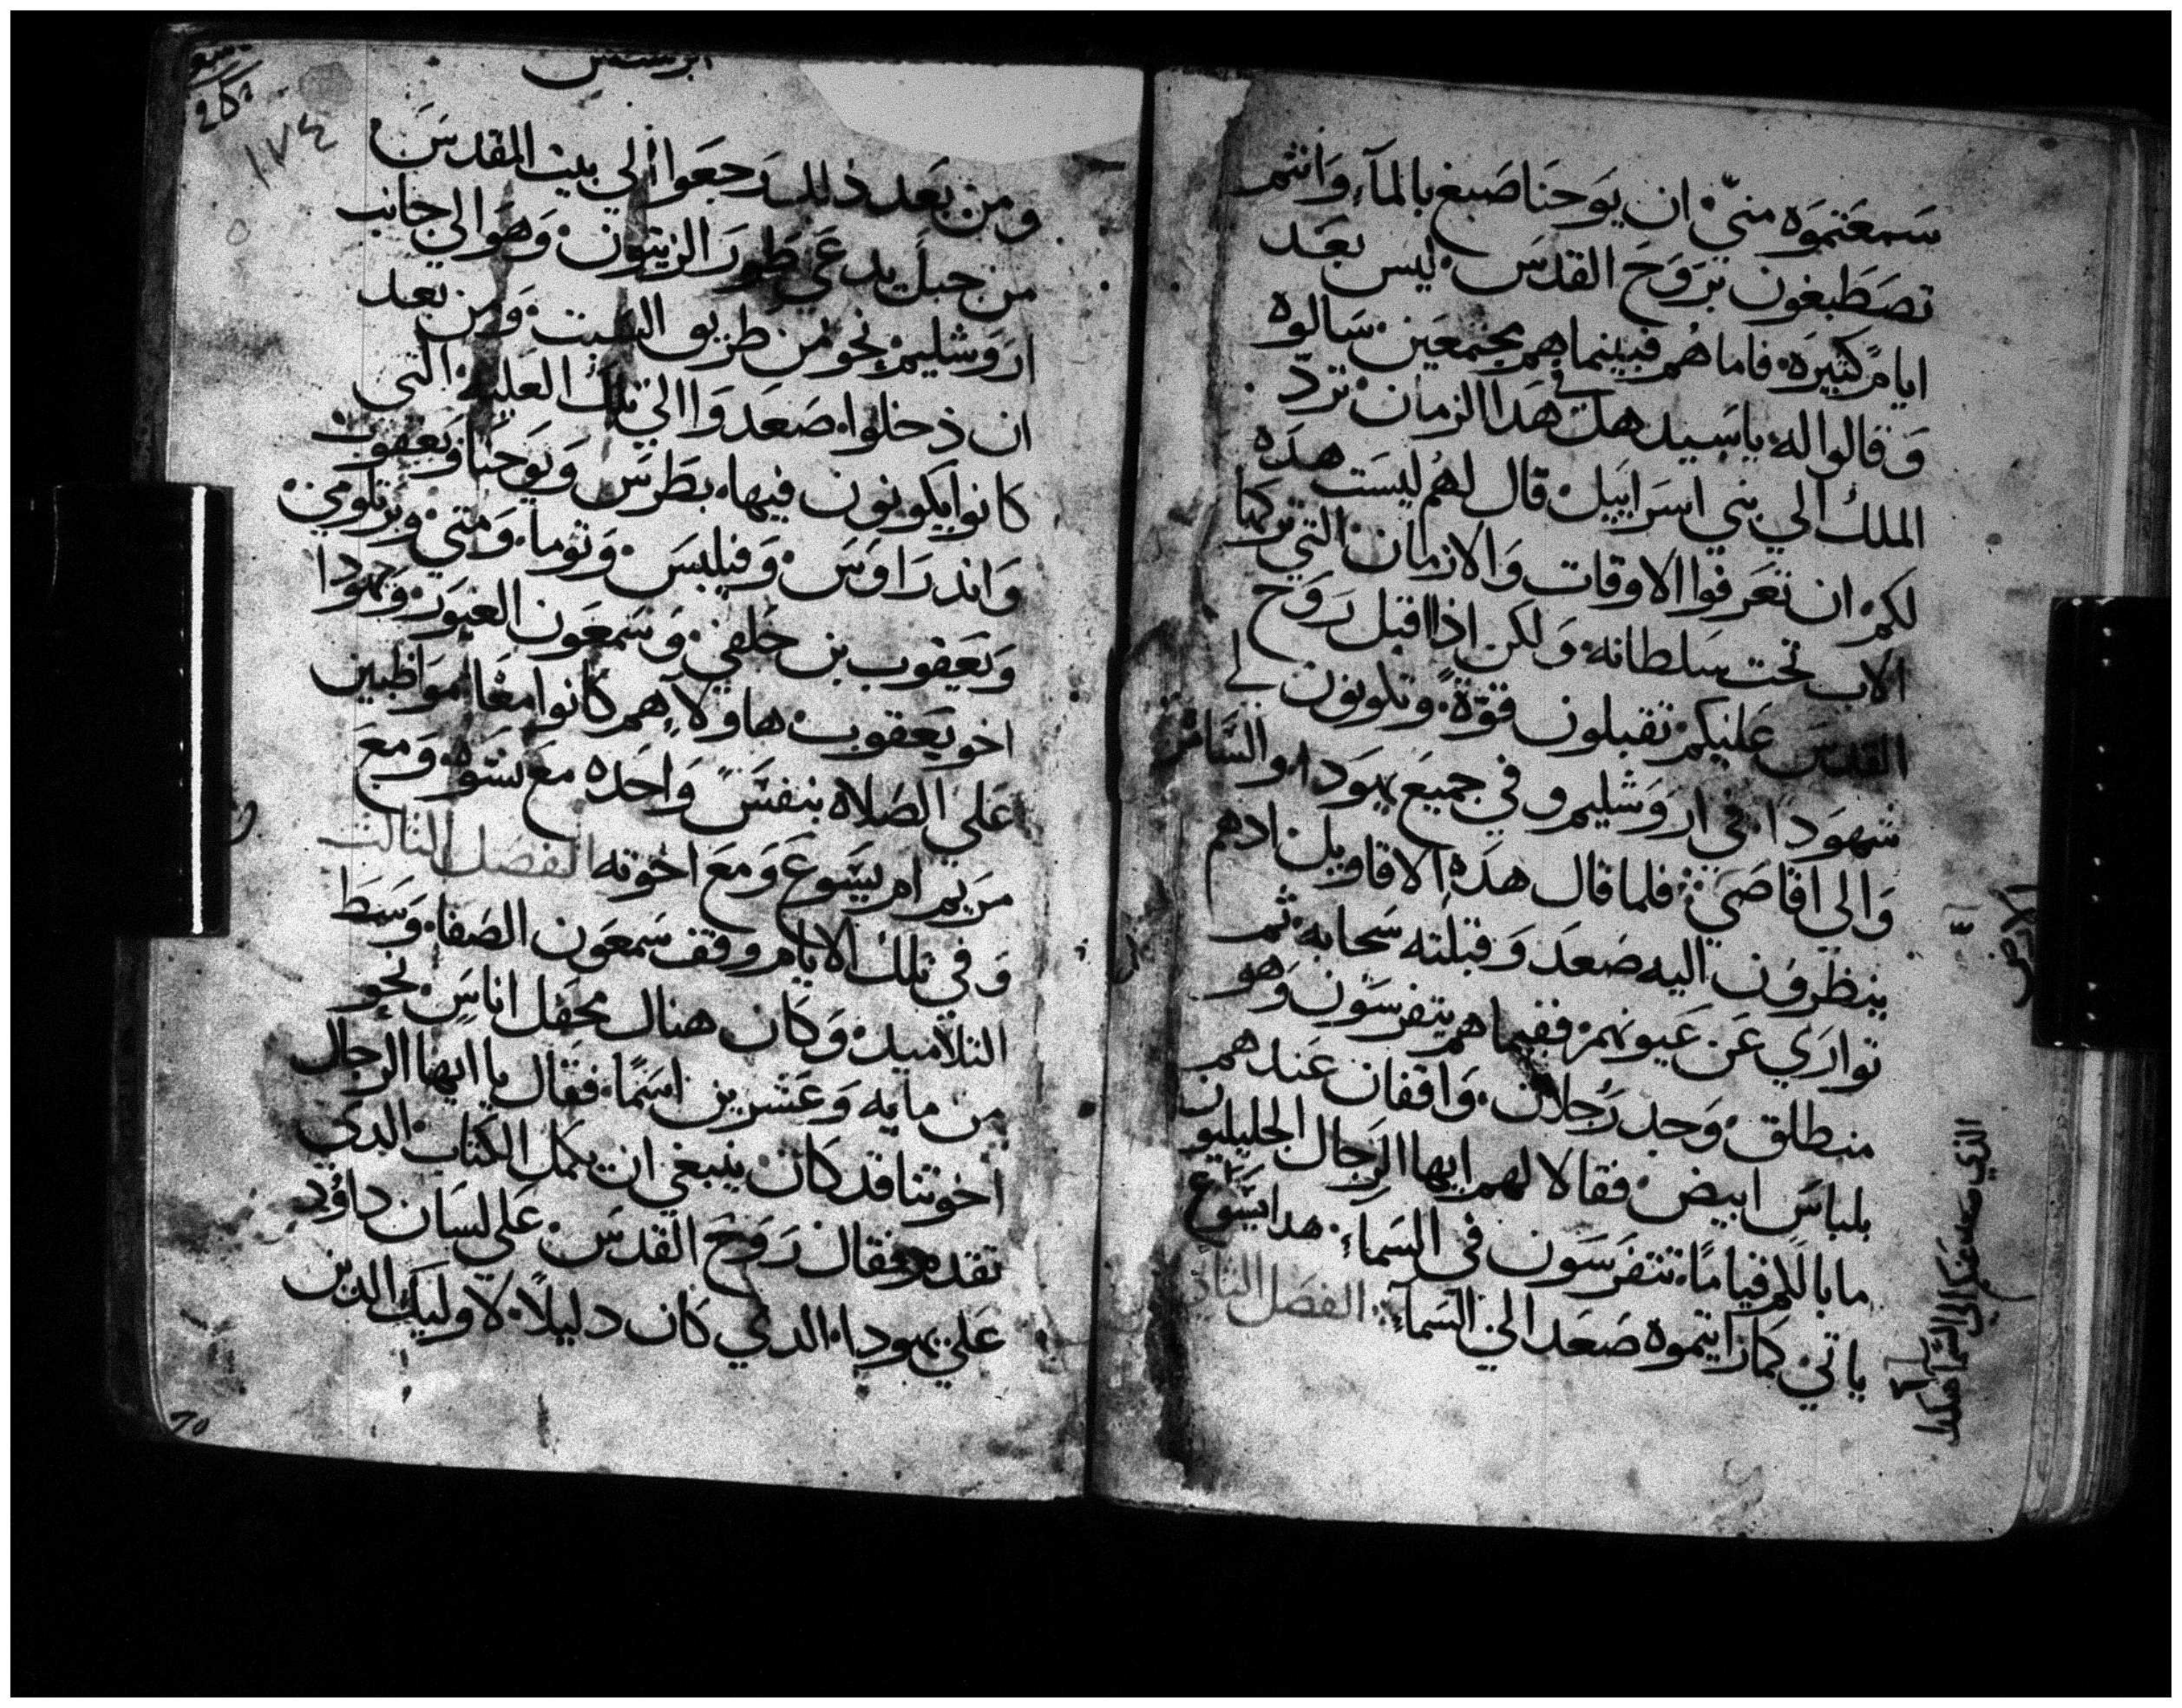 سَمعَتموَه منيّ ان يوَحنَا صَبغ بالمآءِ وَانتُم
تصَطَبغون برَوَح القدسَ. ليسَ بعَد
ايامٍ كثيره. فاما هُم فبينما هم مجتمعَين. سَالوه
وَقالوا له. ياسَيد هَل في هَدا الزمان تردّ
الملك الي بني اسَراييل. قال لهُم ليسَت هدَه
لكم ان تعَرفوا الاوقات وَالازمان التي تركها
الاب تحت سَلطانه. وَلكن اذا اقبل رَوَح
القدسَ عَليكم تقبلون قوَة. وتكونون لي
شهوَدا. في ارَوَشليم وفي جميعَ يهوَدا. والسَّامرة
وَالي اقاصَي فلما قال هَدَه الاقاويل اذ هم
ينظرَوَن اليه صَعَد وَقبلته سَحابه. ثم
توارَي عَن عَيونهم. ففيما هم يتفرسَون وَهو
منطلق. وَجد رَجلان. وَاقفان عَندهم
بلباسَ ابيض. فقالا لهم ايها الرَجال الجليليون
ما بالكم قيامًا. تتفرَسَون في السَماءِ. هدا يسَوَع
ياتي كما رَايتموه صَعَد الي السَماءِ. الفصَل الثاني
الارض
الذي صعد عنكم الي السَّمآ هكدا
١٧٤
ومن بَعَد ذلك رَجعَوا الي بيت المقدسَ
من جبل يدعَي طورَ الزيتون. وَهوَ الي جانب
ارَوَشليم. نحو من طريق السَبت. وَمن بعد
ان دخلوا. صَعَدَوا الي تلك العَليه. التي
كانوا يكونون فيها. بطَرسَ وَيوَحنا وَيعَقوب
وَاندرَاوَسَ. وَفيلبسَ. وَتوما. وَمتي. وبرتلومي.
وَيَعَقوب بن حلفي. وَسَمعَون الغيَورَ. وَيهوَدا
اخو يَعَقوب. هاولاءِ هم كانوا معَا موَاظبين
عَلي الصَلاه بنفسٍَ وَاحَده معَ نسَوَه. وَمعَ
مرَيم ام يسَوع وَمعَ اخوته الفصَل التالت
وَفي تلك الايام وقف سَمعَون الصَفا. وَسَط
التلاميد. وَكان هناك محَفل اناسَ. نحو
من مايه وَعَشرين اسَمًا. فقال يا ايها الرَجال
اخوتنا قد كان ينبغي ان يكمل الكتاب. الدي
تقدم فقال رَوَح القدسَ. عَلي لسَان داوَد
عَلي يهودا. الدي كان دليلًا. لاوليك الدين